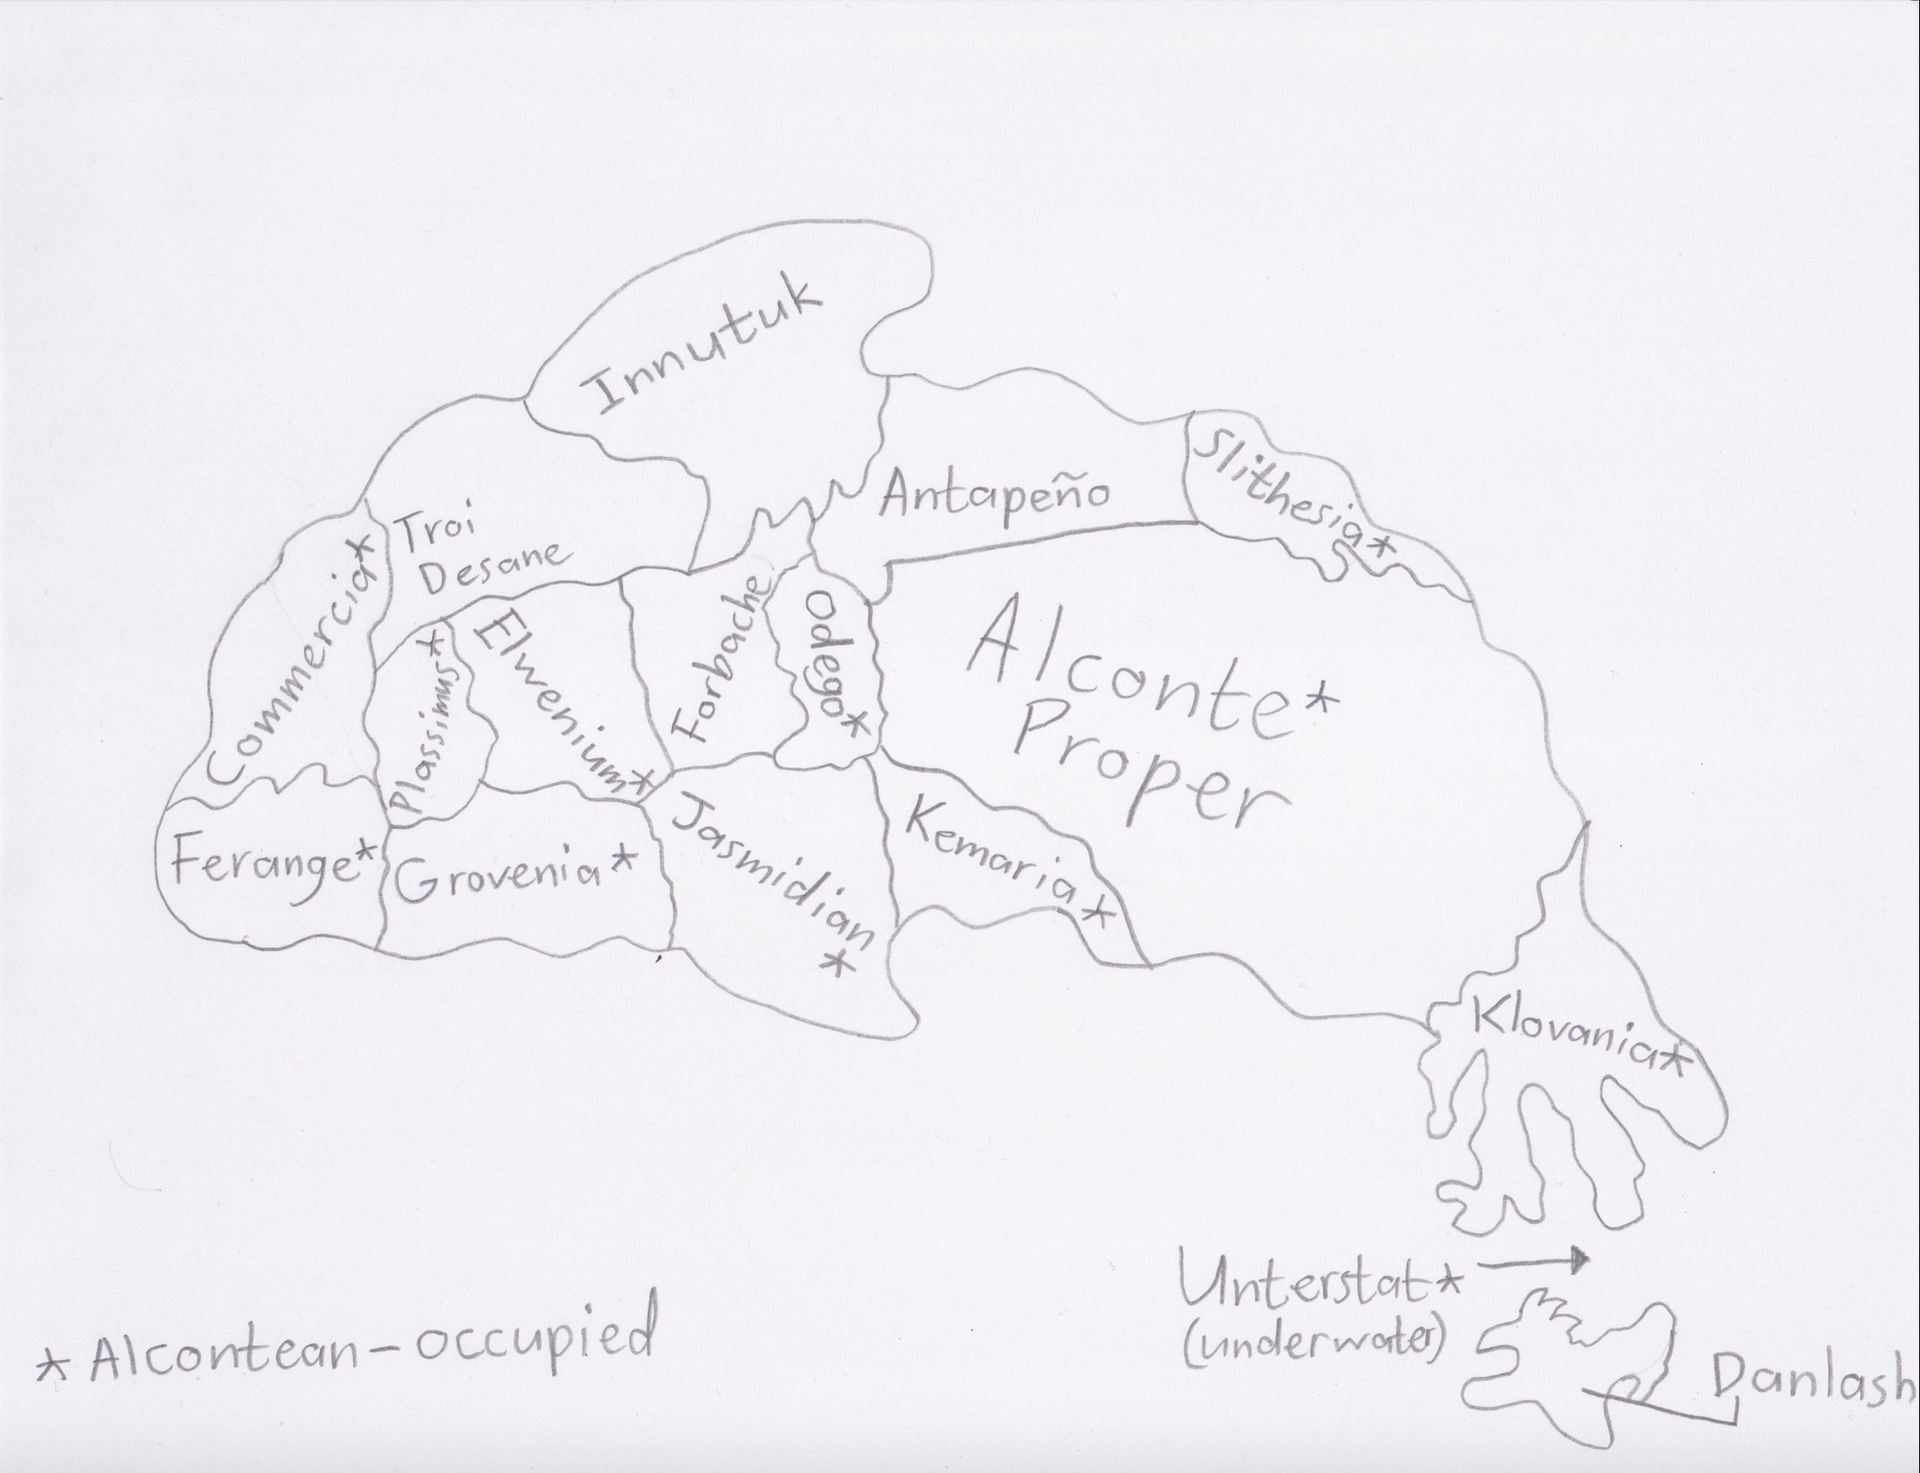 Innutuk
Antapeño
Slithesia*
Troi
Desane
Commercia*
Plassimus*
Elwenium*
Forbache
Odego*
Alconte*
Proper
Ferange*
Grovenia*
Jasmidian
*
Kemaria*
Klovania*
Unterstat*
(underwater)
Danlash
* Alcontean-occupied